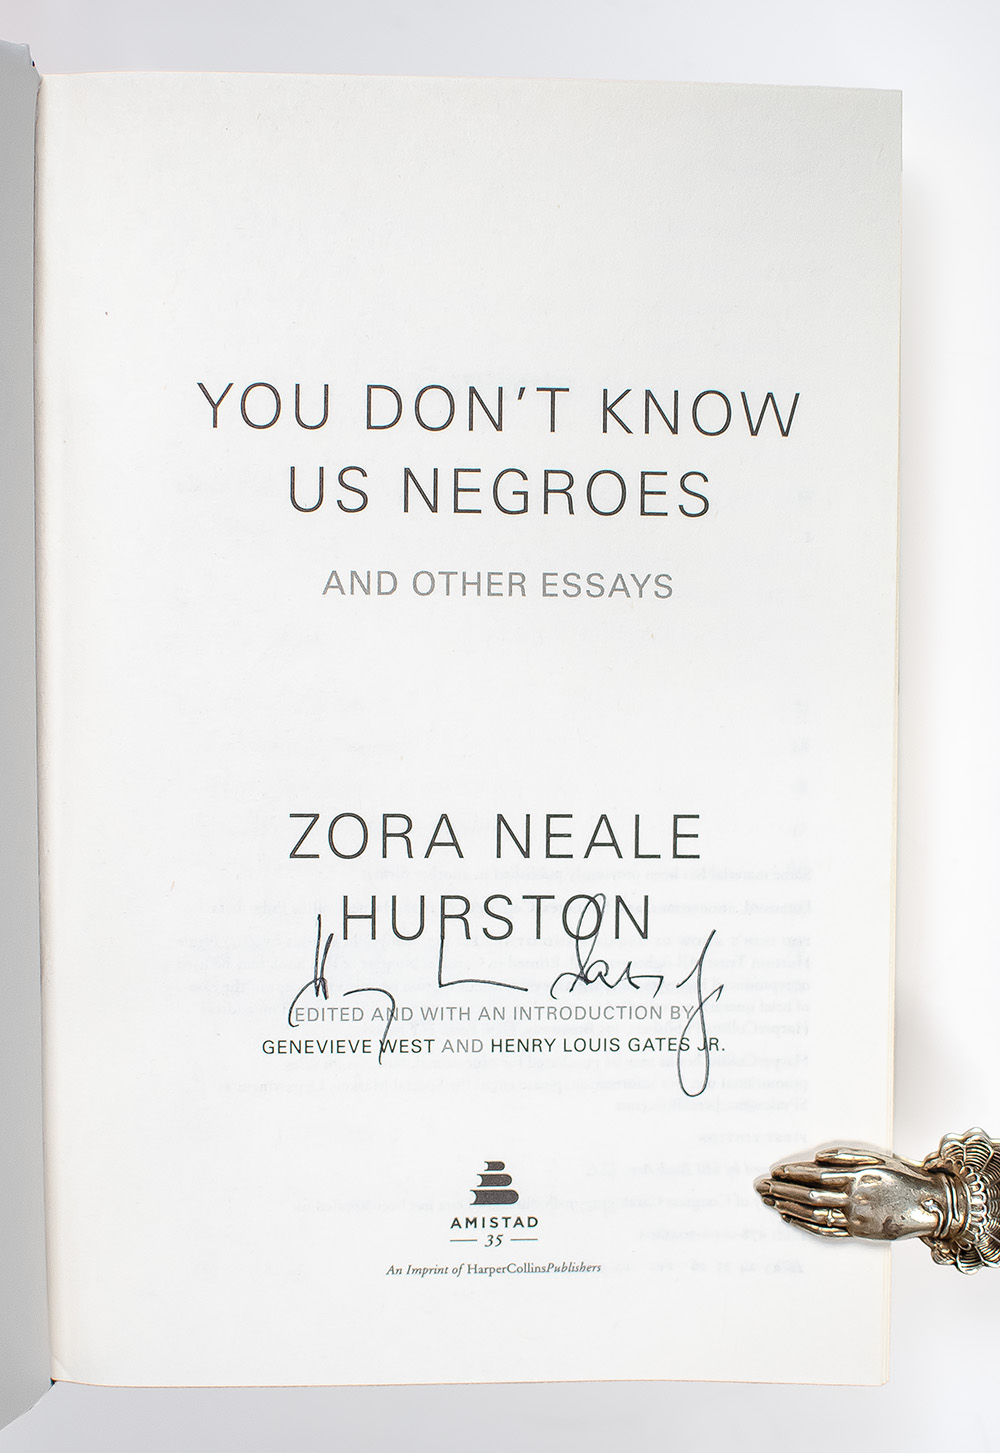 YOU DON'T KNOW
US NEGROES
AND OTHER ESSAYS
ZORA NEALE
HURSTON
EDITED AND WITH AN INTRODUCTION BY
GENEVIEVE WEST AND HENRY LOUIS GATES JR.
AMISTAD
35
An Imprint of HarperCollinsPublishers